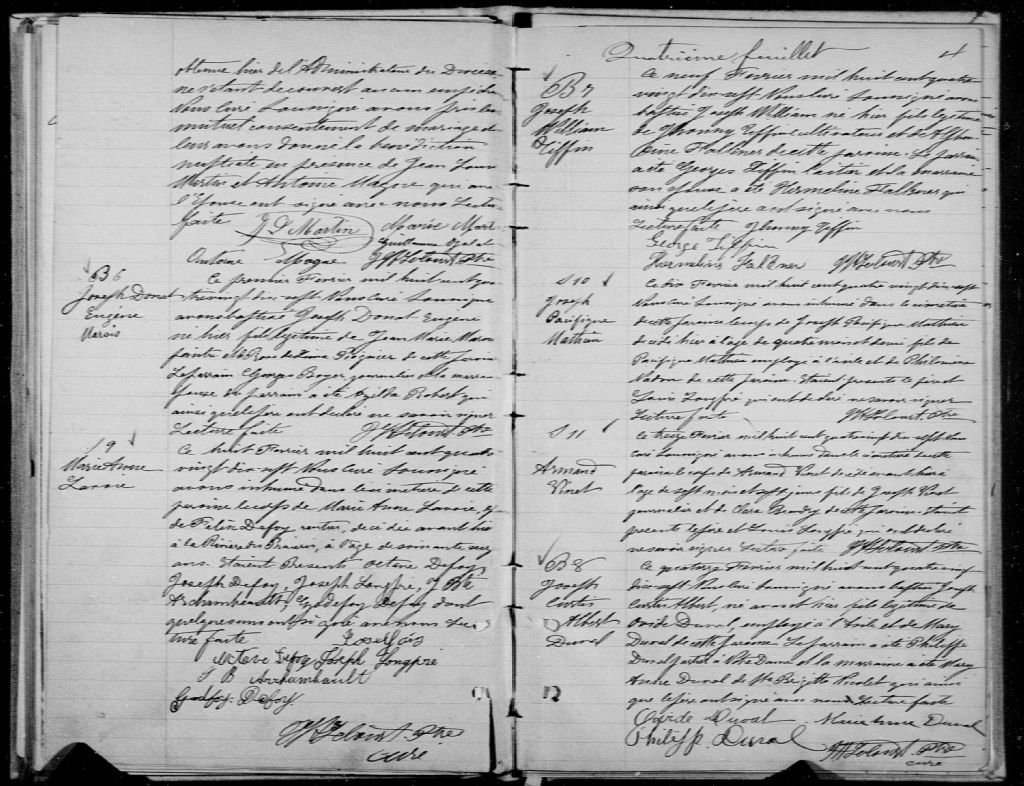 obtenue hier de l'Administrateur du Diocèse
ne s'étant découvert aucun empêche
Nous Curé Soussigné avons pris leur
mutuel consentement de mariage et
leur avons donné la bénédiction
nuptiale en présence de Jean Louis
Martin et Antoine Magne qui avec
l'Epouse ont signé avec nous Lecture
faite J L Martin Marie Mart
Guillaume
Antoine Magne Ptre
B 6
Joseph Donat
Eugène
Marois
Ce premier Fevrier mil huit cent qua
tre vingt dix sept Nous Curé Soussigné
avons baptisé Joseph Donat Eugène
né hier fils légitime de Jean Marie Marois
et de Rose de Lima de cette paroisse
Le parrain Georges Boyer journalier et la marrai
épouse du parrain a été Ezilda Robert qui
ainsi que le père ont déclaré ne savoir signer
Lecture faite Ptre
S 9
Marie Anne
Lavoie
Ce huit Fevrier mil huit cent quatre
vingt dix sept Nous Curé Soussigné
avons inhumé dans le cimetière de cette
paroisse le corps de Marie Anne Lavoie, ép
de Félix Defoy rentier, décédée avant hier
à la Rivière des Prairies, à l'âge de soixante
ans. Etaient Présents Octave Defoy
Joseph Defoy, Joseph Longpré, J Bte
Archambault, Godefroy Defoy dont
quelques uns ont signé avec nous Lec
ture faite
Octave Defoy Joseph Longpré
J B Archambault
Godfroy Defoy
Ptre
curé
Quatrième feuillet 4
B 7
Joseph
William
Tiffin
Ce neuf Fevrier mil huit cent quatre
vingt dix sept Nous Curé Soussigné avons
baptisé Joseph William né hier fils légitime
de Jhonny Tiffin cultivateur et de Alphon
sine Falkner de cette paroisse. Le parrain
a été Georges Tiffin laitier et la marraine
son épouse a été Hermeline Falkner qui
ainsi que le père ont signé avec nous
Lecture faite Jhonny Tiffin
George Tiffin
Hermeline Falkner Ptre
S 10
Joseph
Pacifique
Mathieu
Ce dix Fevrier mil huit cent quatre vingt dix sept
Nous Curé Soussigné avons inhumé dans le cimetière
de cette paroisse le corps de Joseph Pacifique Mathieu
décédé hier à l'âge de quatre mois et demi fils de
Pacifique Mathieu employé à l'asile et de Philomène
Nadon de cette paroisse. Etaient présents le père et
Louis Longpré qui ont déclaré ne savoir signer
Lecture faite Ptre
S 11
Armand
Vinet
Ce treize Fevrier mil huit cent quatre vingt dix sept Nous
Curé Soussigné avons inhumé dans le cimetière de cette
paroisse le corps de Armand Vinet décédé avant hier à
l'âge de sept mois et sept jours fils de Joseph Vinet
journalier et de Clara Beaudry de cette paroisse. Etaient
présents le père et Louis Longpré qui ont déclaré
ne savoir signer Lecture faite Ptre
B 8
Joseph
Curtis
Albert
Duval
Ce quatorze Fevrier mil huit cent quatre vingt
dix sept Nous Curé Soussigné avons baptisé Joseph
Curtis Albert, né avant hier fils légitime de
Ovide Duval employé à l'Asile et de Mary
Duval de cette paroisse Le parrain a été Philippe
Duval et la marraine a été Mary
Anne Duval de Ste Brigitte qui ainsi
que le père ont signé avec nous Lecture faite
Ovide Duval Marie Anne Duval
Philippe Duval Ptre
curé